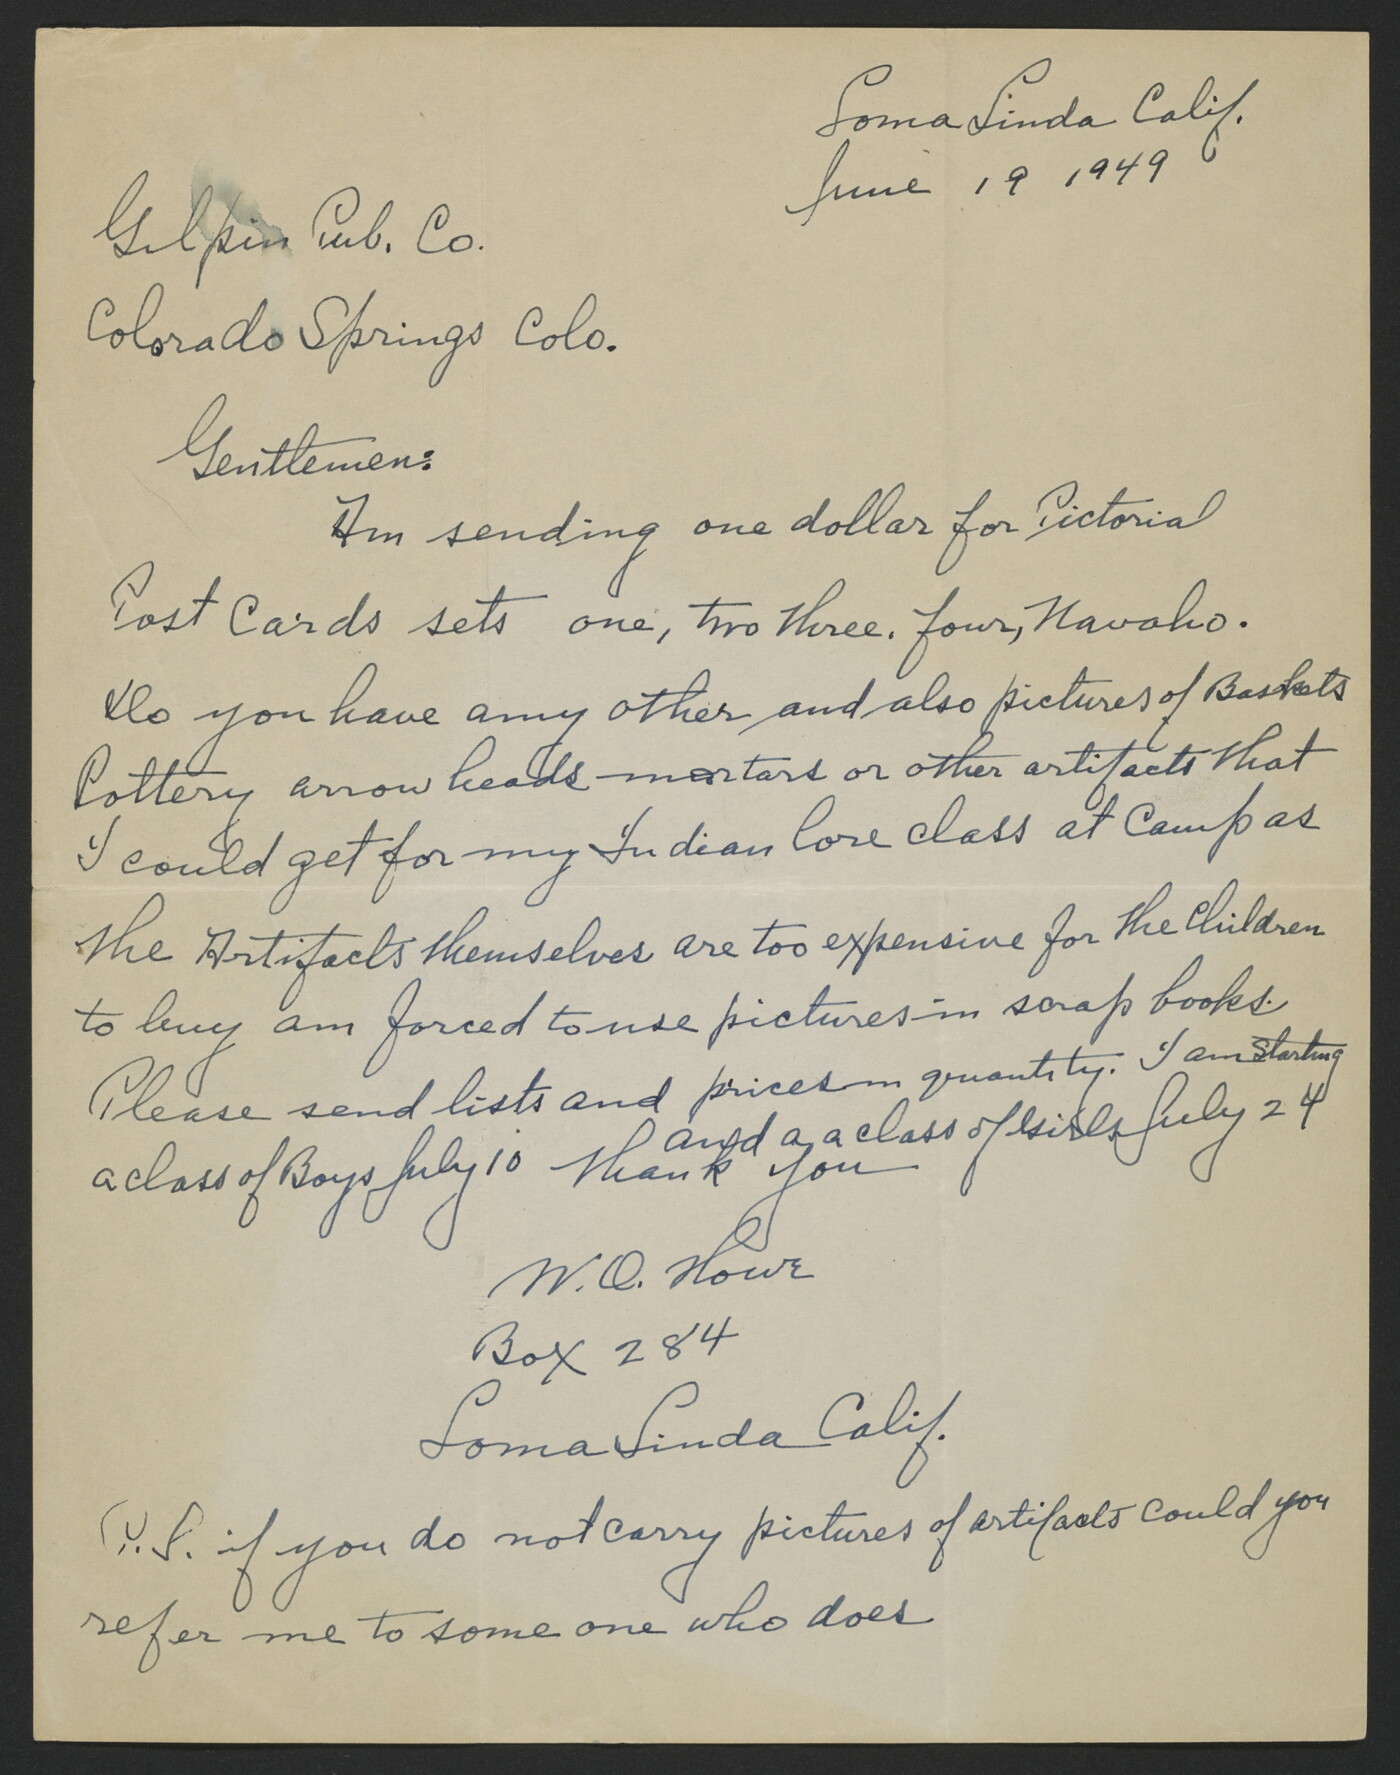 Loma Linda Calif.
June 19 1949
Gilpin Pub. Co.
Colorado Springs Colo.
Gentlemen:
Am sending one dollar for Pictorial
Post Cards sets one, two three. four, Navaho.
Do you have any other and also pictures of Baskets
Pottery arrow heads mortars or other artifacts that
I could get for my Indian lore class at Camp as
the Artifacts themselves are too expensive for the Children
to buy am forced to use pictures in scrap books.
Please send lists and prices in quantity. I am starting
a class of Boys July 10 and a a class of Girls July 24
Thank you
W.O. Howe
Box 284
Loma Linda Calif.
P.S. if you do not carry pictures of artifacts could you
refer me to some one who does